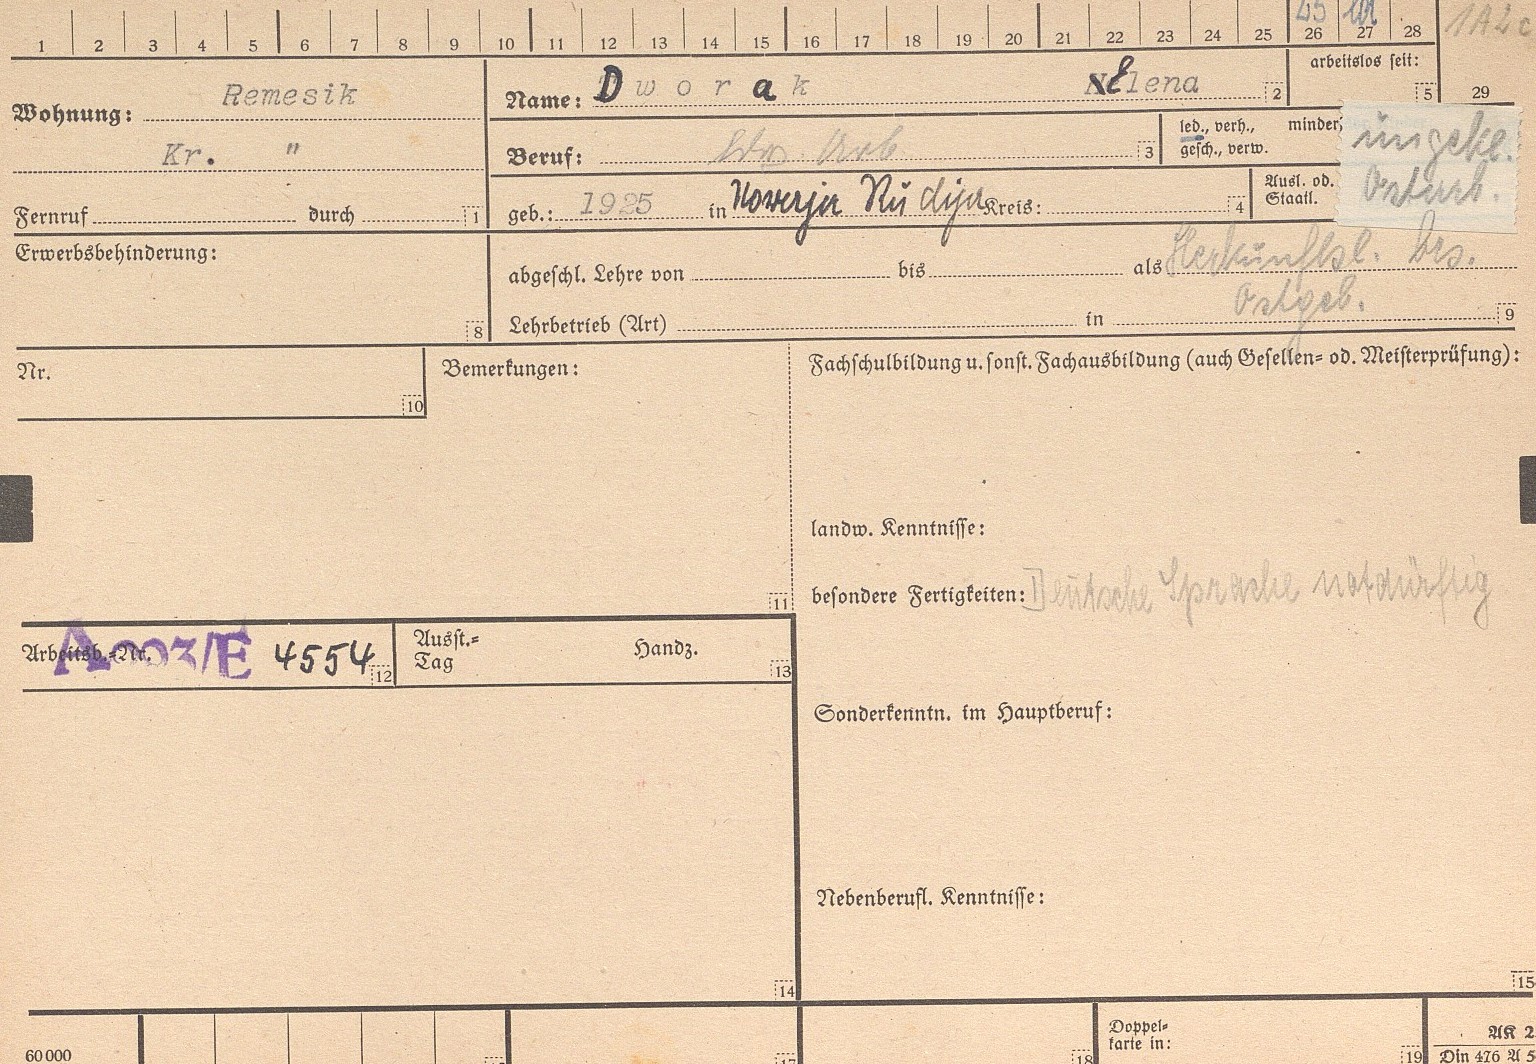 1 2 3 4 5 6 7 8 9 10 11 12 13 14 15 16 17 18 19 20 21 22 23 24 25 26 27 28
1A2c
Wohnung: Remesik
Kr. "
Fernruf durch 1
Name: Dworak Elena 2
arbeitslos seit: 5 29
Beruf: Arb 3
led., verh., minder
gesch., verw.
ungekl.
Ostarb.
geb.: 1925 in Kreis: 4
Ausl. od.
Staatl.
Erwerbsbehinderung:
8
abgeschl. Lehre von bis als Herkunftsl. bes.
Ostgeb.
Lehrbetrieb (Art) in 9
Nr.
10
Bemerkungen:
11
Fachschulbildung u. sonst. Fachausbildung (auch Gesellen- od. Meisterprüfung):
landw. Kenntnisse:
besondere Fertigkeiten: Deutsche Sprache notdürftig
Arbeitsb.-Nr. A 003/E 4554 12
Ausst.-
Tag
Handz. 13
Sonderkenntn. im Hauptberuf:
Nebenberufl. Kenntnisse:
14
15
60 000
17
18
Doppel-
karte in:
19
AK 2
Din 476 A 5